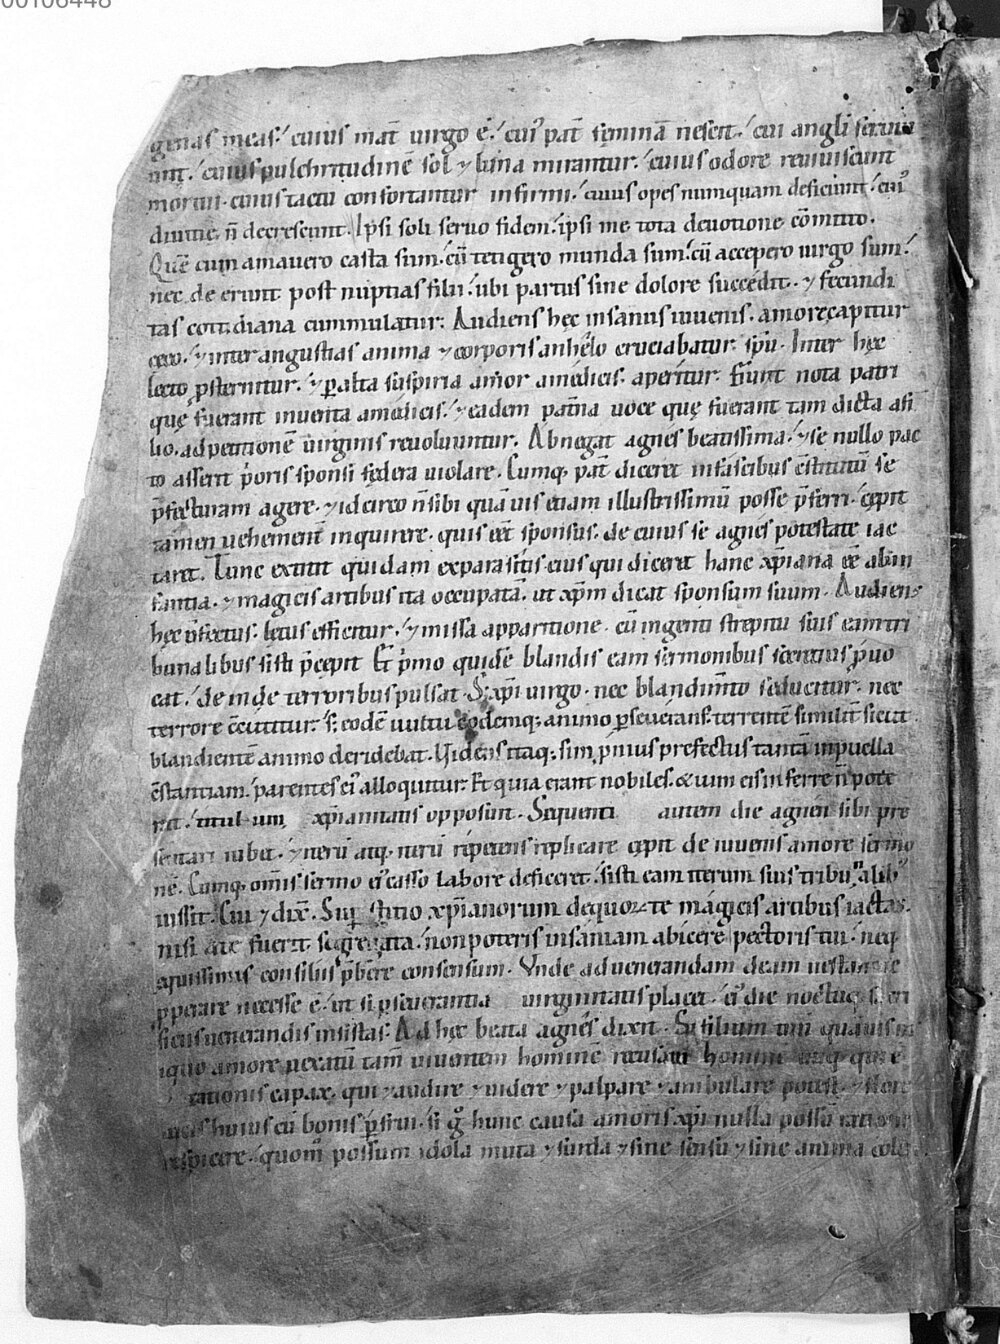 00106448
genas meas. cuius mat̄ uirgo ē. cui᷒ pat̄ feminā nescit. cui angli seruiu
unt. cuius pulchritudinē sol ⁊ luna mirantur. cuius odore reuiuiscunt
mortui. cuius tactu confortantur infirmi. cuius opes numquam deficiunt. cui᷒
diuitie n̄ decrescunt. Ipsi soli seruo fidem. ipsi me tota deuotione cōmitto.
Quē cum amauero casta sum. cū tetigero munda sum. cū accepero uirgo sum.
nec de erunt post nuptias filii. ubi partus sine dolore succedit. ⁊ fecundi
tas cotidiana cummulatur. Audiens hec insanus iuuenis. amore capitur
ceco. ⁊ inter angustias anima ⁊ corporis anhelo cruciabatur. spū. Inter hec
lecto psternitur. ⁊ p alta suspiria amor a medicis. aperitur. Fiunt nota patri
quę fuerant inuenta a medicis. ⁊ eadem patna uoce quę fuerant iam dicta a fi
lio. ad petitionē uirginis reuoluuntur. Abnegat agnes beatissima. ⁊ se nullo pac
to asserit p̍oris sponsi federa uiolare. Cumq; pat̄ diceret infascibus cstitutū se
p̄fecturam agere. ⁊ idcirco n̄ sibi quāuis etiam illustrissimū posse p̄ferri. cepit
tamen uehement̄ inquirere. quis eēt sponsus. de cuius se agnes potestate iac
taret. Tunc extitit quidam ex parasitis eius qui diceret hanc xp̄iana eē ab in
fantia. ⁊ magicis artibus ita occupatā. ut xp̄m dicat sponsum suum. Audiens
hęc p̄fectus. letus efficitur. ⁊ missa apparitione. cū ingenti strepitu suis eam tri
bunalibus sisti p̄cepit. Et p̍mo quidē blandis eam sermonibus secretius puo
cat. deinde terroribus pulsat. S; xp̄i uirgo. nec blandim̄to seducitur. nec
terrore ccutitur. s; eodē uultu eodemq; animo pseuerans. terrentē similit̄ sicut
blandientē animo deridebat. Videns itaq; simpnius prefectus tantā in puella
cstantiam. parentes ei᷒ alloquitur. Et quia erant nobiles. & uim eis inferre n̄ pote
rat. titulum xp̄ianitatis opposuit. Sequenti autem die agnen sibi pre
sentari iubet. ⁊ iterū atq; iterū repetens replicare cepit de iuuenis amore sermo
nē. Cumq; omis sermo ei᷒ casso labore deficeret. sisti eam iterum suis tribunalib᷒
iussit. Cui ⁊ dix̄. Supstitio xp̄ianorum de quorū te magicis artibus iactas.
nisi a te fuerit segregata. non poteris insaniam abicere pectoris tui. neq;
equissimis consiliis p̄bere consensum. Vnde ad uenerandam deam uestam te
pperare necesse ē. ut si pseuerantia uirginitatis placet. ei᷒ die noctuq; sacri
ficiis uenerandis insistas. Ad hęc beata agnes dixit. Si filium tuū quāuis in
iquo amore uexatū tam̄ uiuentem hominē recusaui hominē utiq; qui ē
rationis capax. qui ⁊ audire ⁊ uidere ⁊ palpare ⁊ ambulare potest. ⁊ flore
lucis huius cū bonis pfrui. si g̊ hunc causa amoris xp̄i nulla possū ratione
respicere. quom̄ possum idola muta ⁊ surda ⁊ sine sensu ⁊ sine anima colere